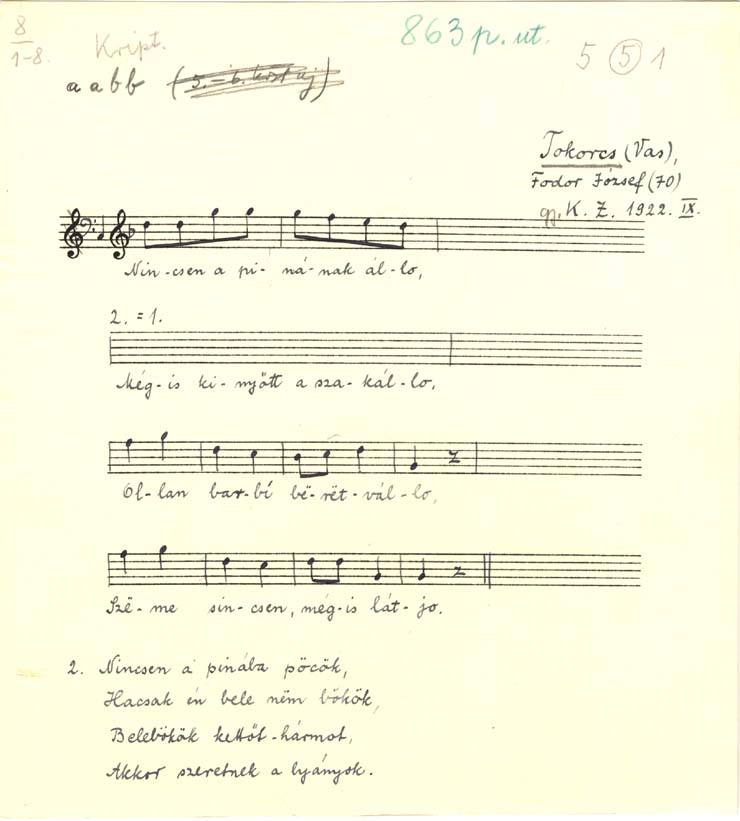 8
1-8.
Kript.
863 p. ut.
5 5 1
a a b b
Tokorcs (Vas),
Fodor József (70)
gy. K. Z. 1922. IX.
Nin-csen a pi-ná-nak ál-lo,
2. = 1.
Még-is ki-nyőtt a sza-kál-lo,
Ol-lan bar-bí bë-rët-vál-lo,
Szë-me sin-csen, még-is lát-jo.
2. Nincsen a pinába pöcök,
Hacsak én bele nëm bökök,
Belebökök kettőt-hármot,
Akkor szeretnek a lyányok.